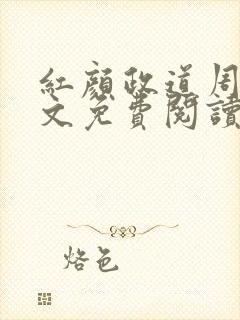 紅顏政道周
文免費閱讀
烙色